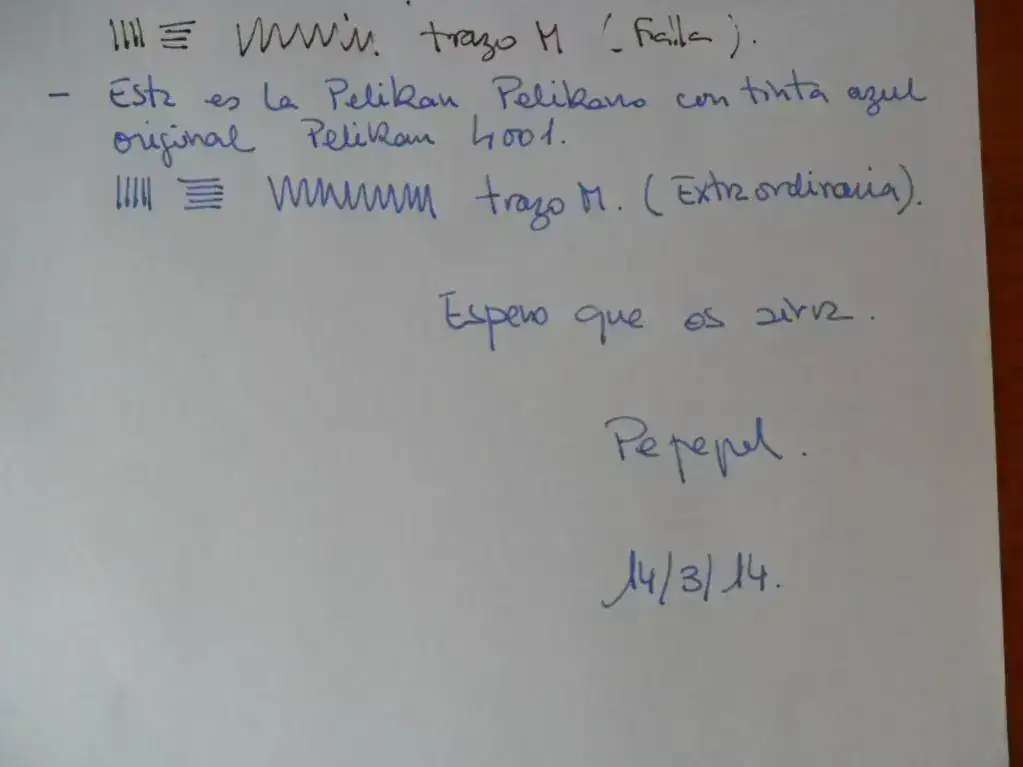 trazo M (Falla).
- Esta es la Pelikan Pelikano con tinta azul
original Pelikan 4001.
trazo M. (Extraordinaria).
Espero que os sirva.
Pepepel.
14/3/14.